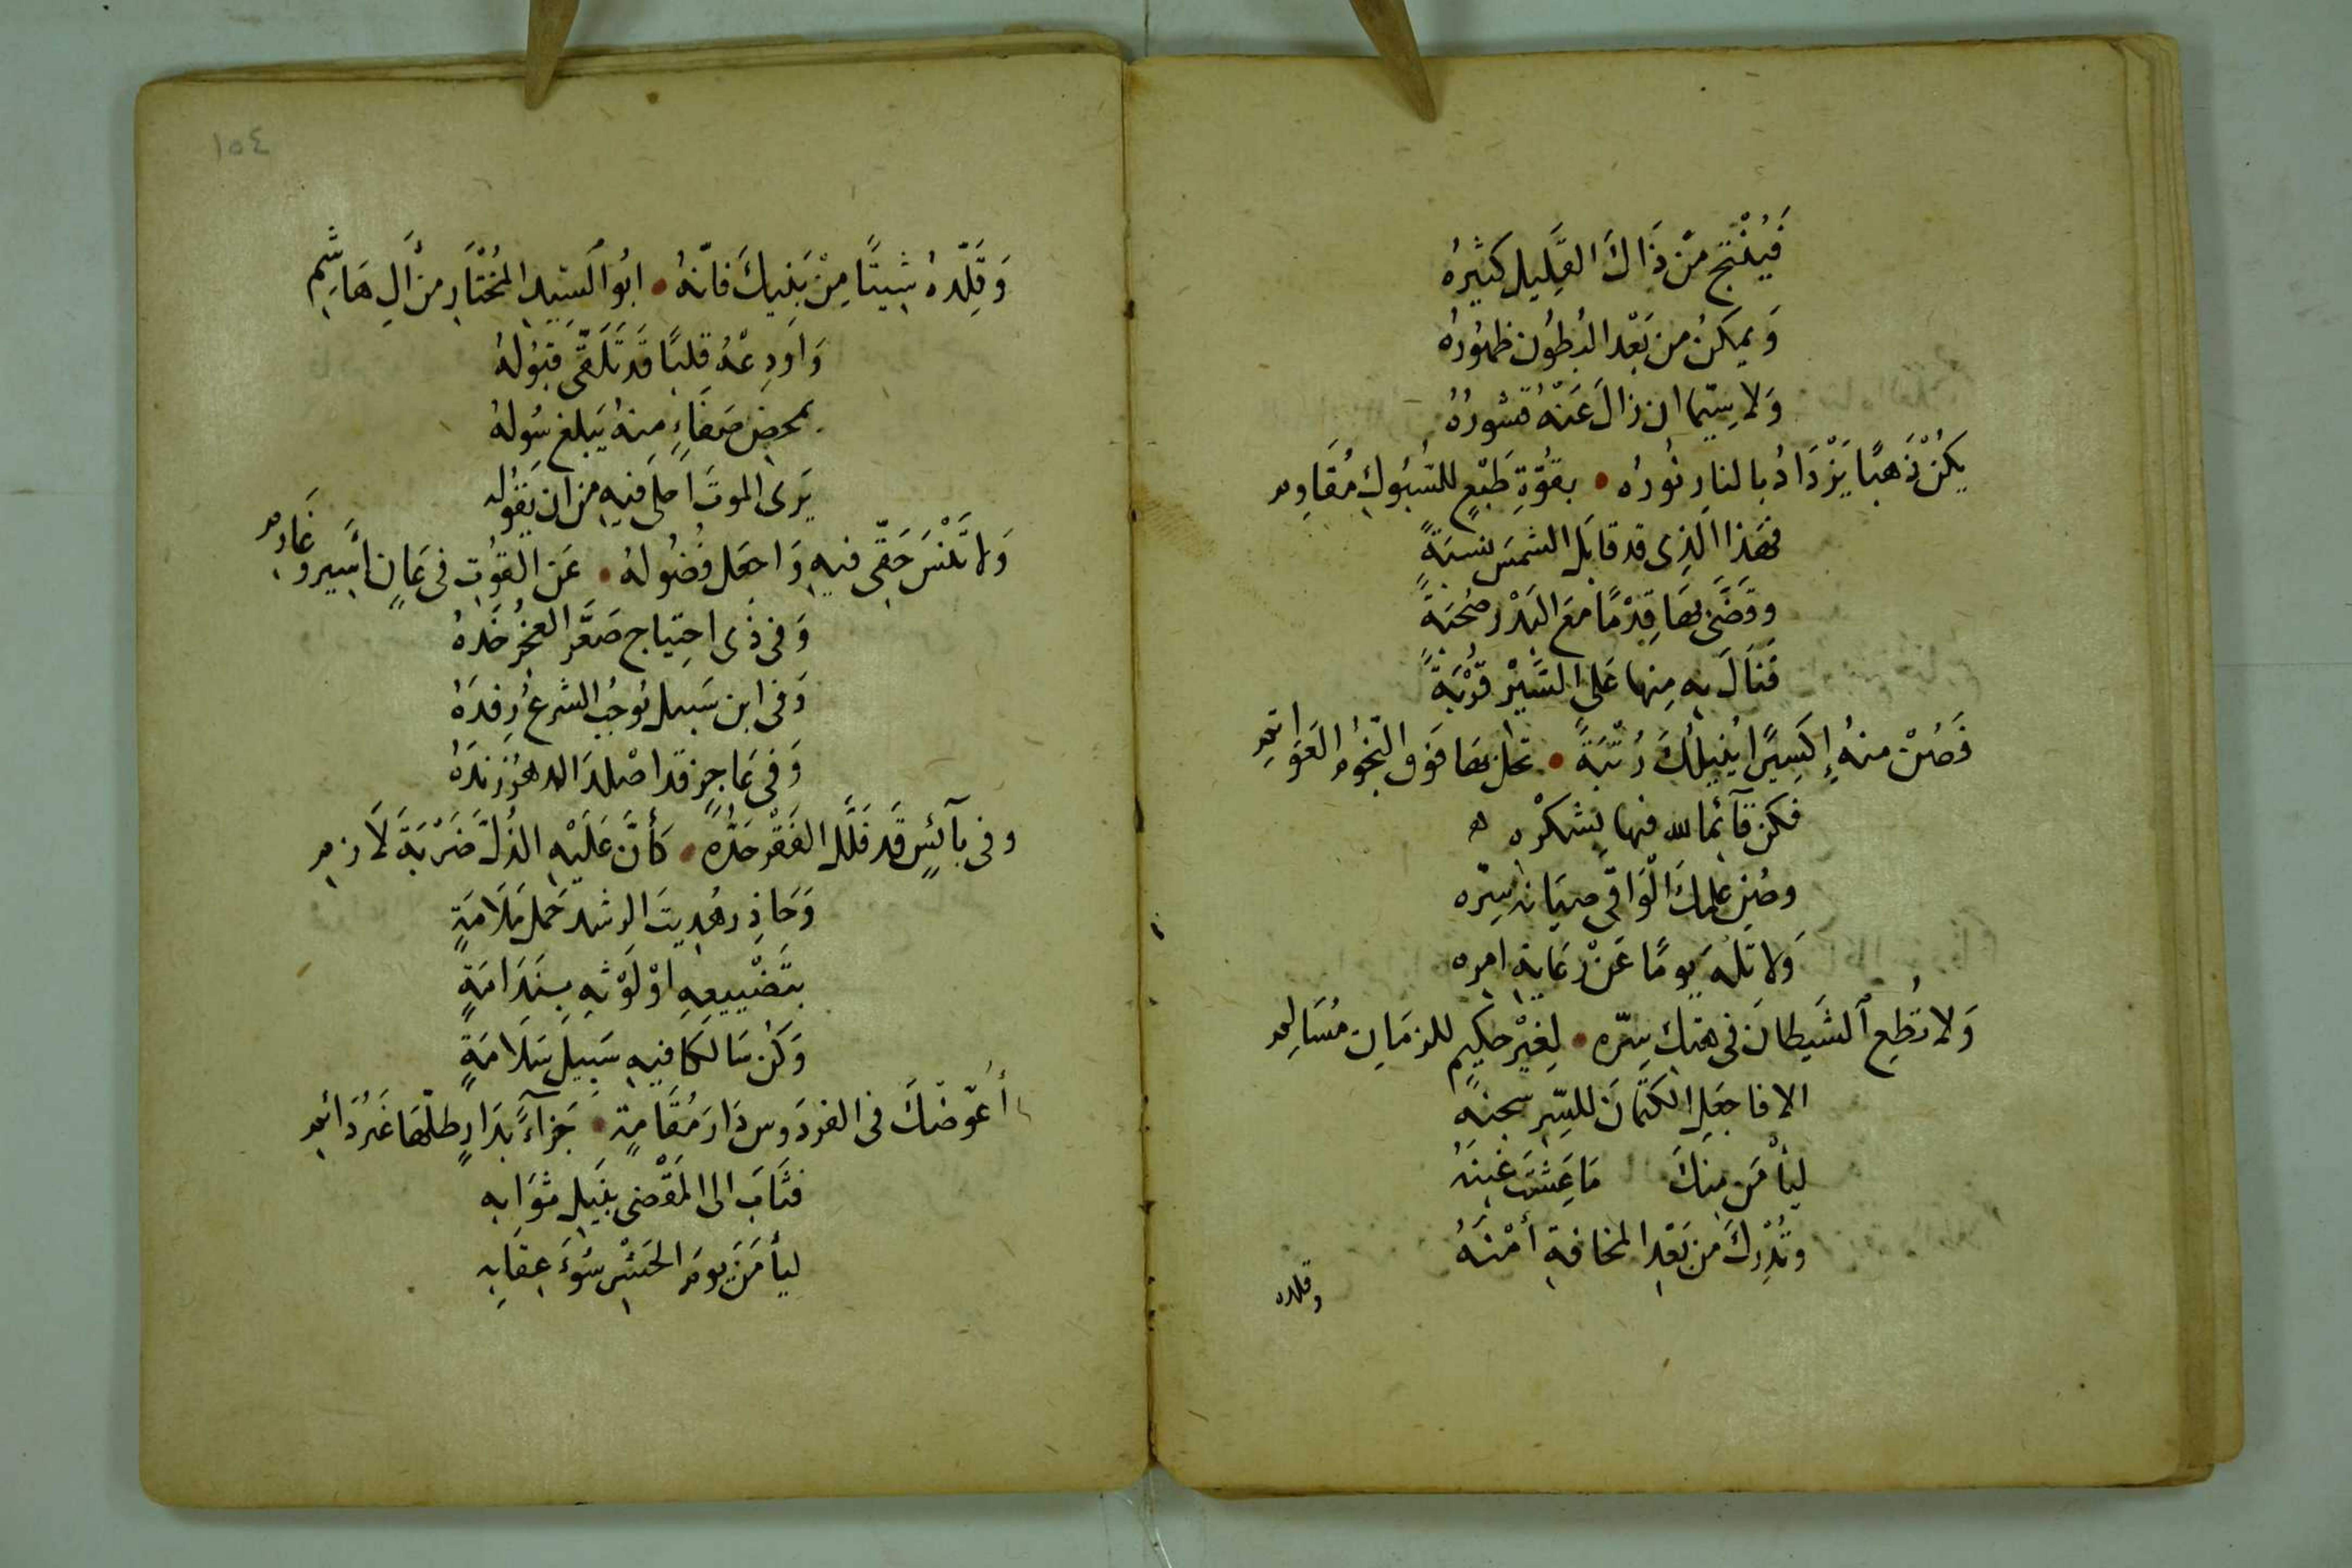 فَيُنْتِجُ مِنْ ذَاكَ القَلِيلِ كَثِيرُهُ
وَيمكنُ من بَعْدِ البُطُون ظهُورُهُ
وَلا سِيّما ان زالَ عَنْهُ قشورُهُ
يكُنْ ذهبًا يَزْدَادُ بالنارِ نُورُه • بقُوّةِ طَبْعٍ للسُّبُوكِ مُقَاوِم
فهَذا الذِى قد قابَل الشمسَ نسبَةً
وقَضَّى بهَا قِدْمًا مَعَ البَدْرِ صُحْبَةً
فنَالَ بهِ منها عَلى السَّيْرِ قُرْبَةً
فَصُنْ منهُ إكسِيرًا يُنيلُكَ رُتْبَةً • تحل بهَا فَوق النّجُوم العَوَاتمِ
فكن قآئما لله فيها بِشكْرْه
وصُن علمكَ الْوَاقى صيَانة سِرّه
وَلا تَلْهُ يومًا عَنْ رعَايةِ امره
وَلا تُطِعِ الشَيطانَ فى هتكِ سِرّه • لِغَيْرِ حكِيمٍ للزمَانِ مُسَالِمِ
الا فاجعَلِ الكتمَانَ للسِّرِ سجنهُ
ليأمَنَ مِنكَ مَا عِشتَ غبنَهُ
وتُدْرِكَ من بَعْدِ المخافةِ أمْنَهُ
وقلده
١٥٤
وَقَلِّدهُ شيئًا مِنْ بَنِيكَ فانّهُ • ابُو السَيّدِ المُخْتَارِ من آلِ هَاشِمِ
وَاودِعْهُ قلبًا قَد تَلَقَّى قبُولهُ
بمحضِ صَفَاءٍ منهُ يَبلغ سُولهُ
يَرى الموتَ احلى فيهِ من ان يَقُوله
وَلا تَنْسَ حَقّى فيهِ وَاجعَل فُضُولهُ • عَن القُوتِ فى عَانٍ اسَيرٍ وغَارمِ
وَفى ذى احتِياج صَعَّر العجْزُ خَدهُ
وَفى ابن سَبيل يُوجبُ الشرعُ رِفدَهُ
وَفى عَاجزٍ قد اصْلدَ الدهرُ زندَهُ
وفى بآئسٍ قَد فَلَّلَ الفَقْرُ حَدَّهُ • كَأَنَّ عَلَيْهِ الذُلَّ ضَرْبَةَ لَازمِ
وَحَاذِر هُدِيتَ الرشد حَمل مَلَامَةٍ
بتَضْيِيعِهِ اوْ لَوْثهِ بِنَدَامَةٍ
وَكُن سَالكا فيهِ سَبِيلَ سَلَامَةٍ
أُعَوّضْكَ فى الفردَوس دَارَ مُقَامَةٍ • جَزآءً بدَارٍ ظلّهَا غَيْرُ دَائمِ
فثَابَ الى المَرْضى بنَيلِ ثوَابهِ
ليأمَنَ يومَ الحَشْرِ سُوءَ عِقَابِهِ